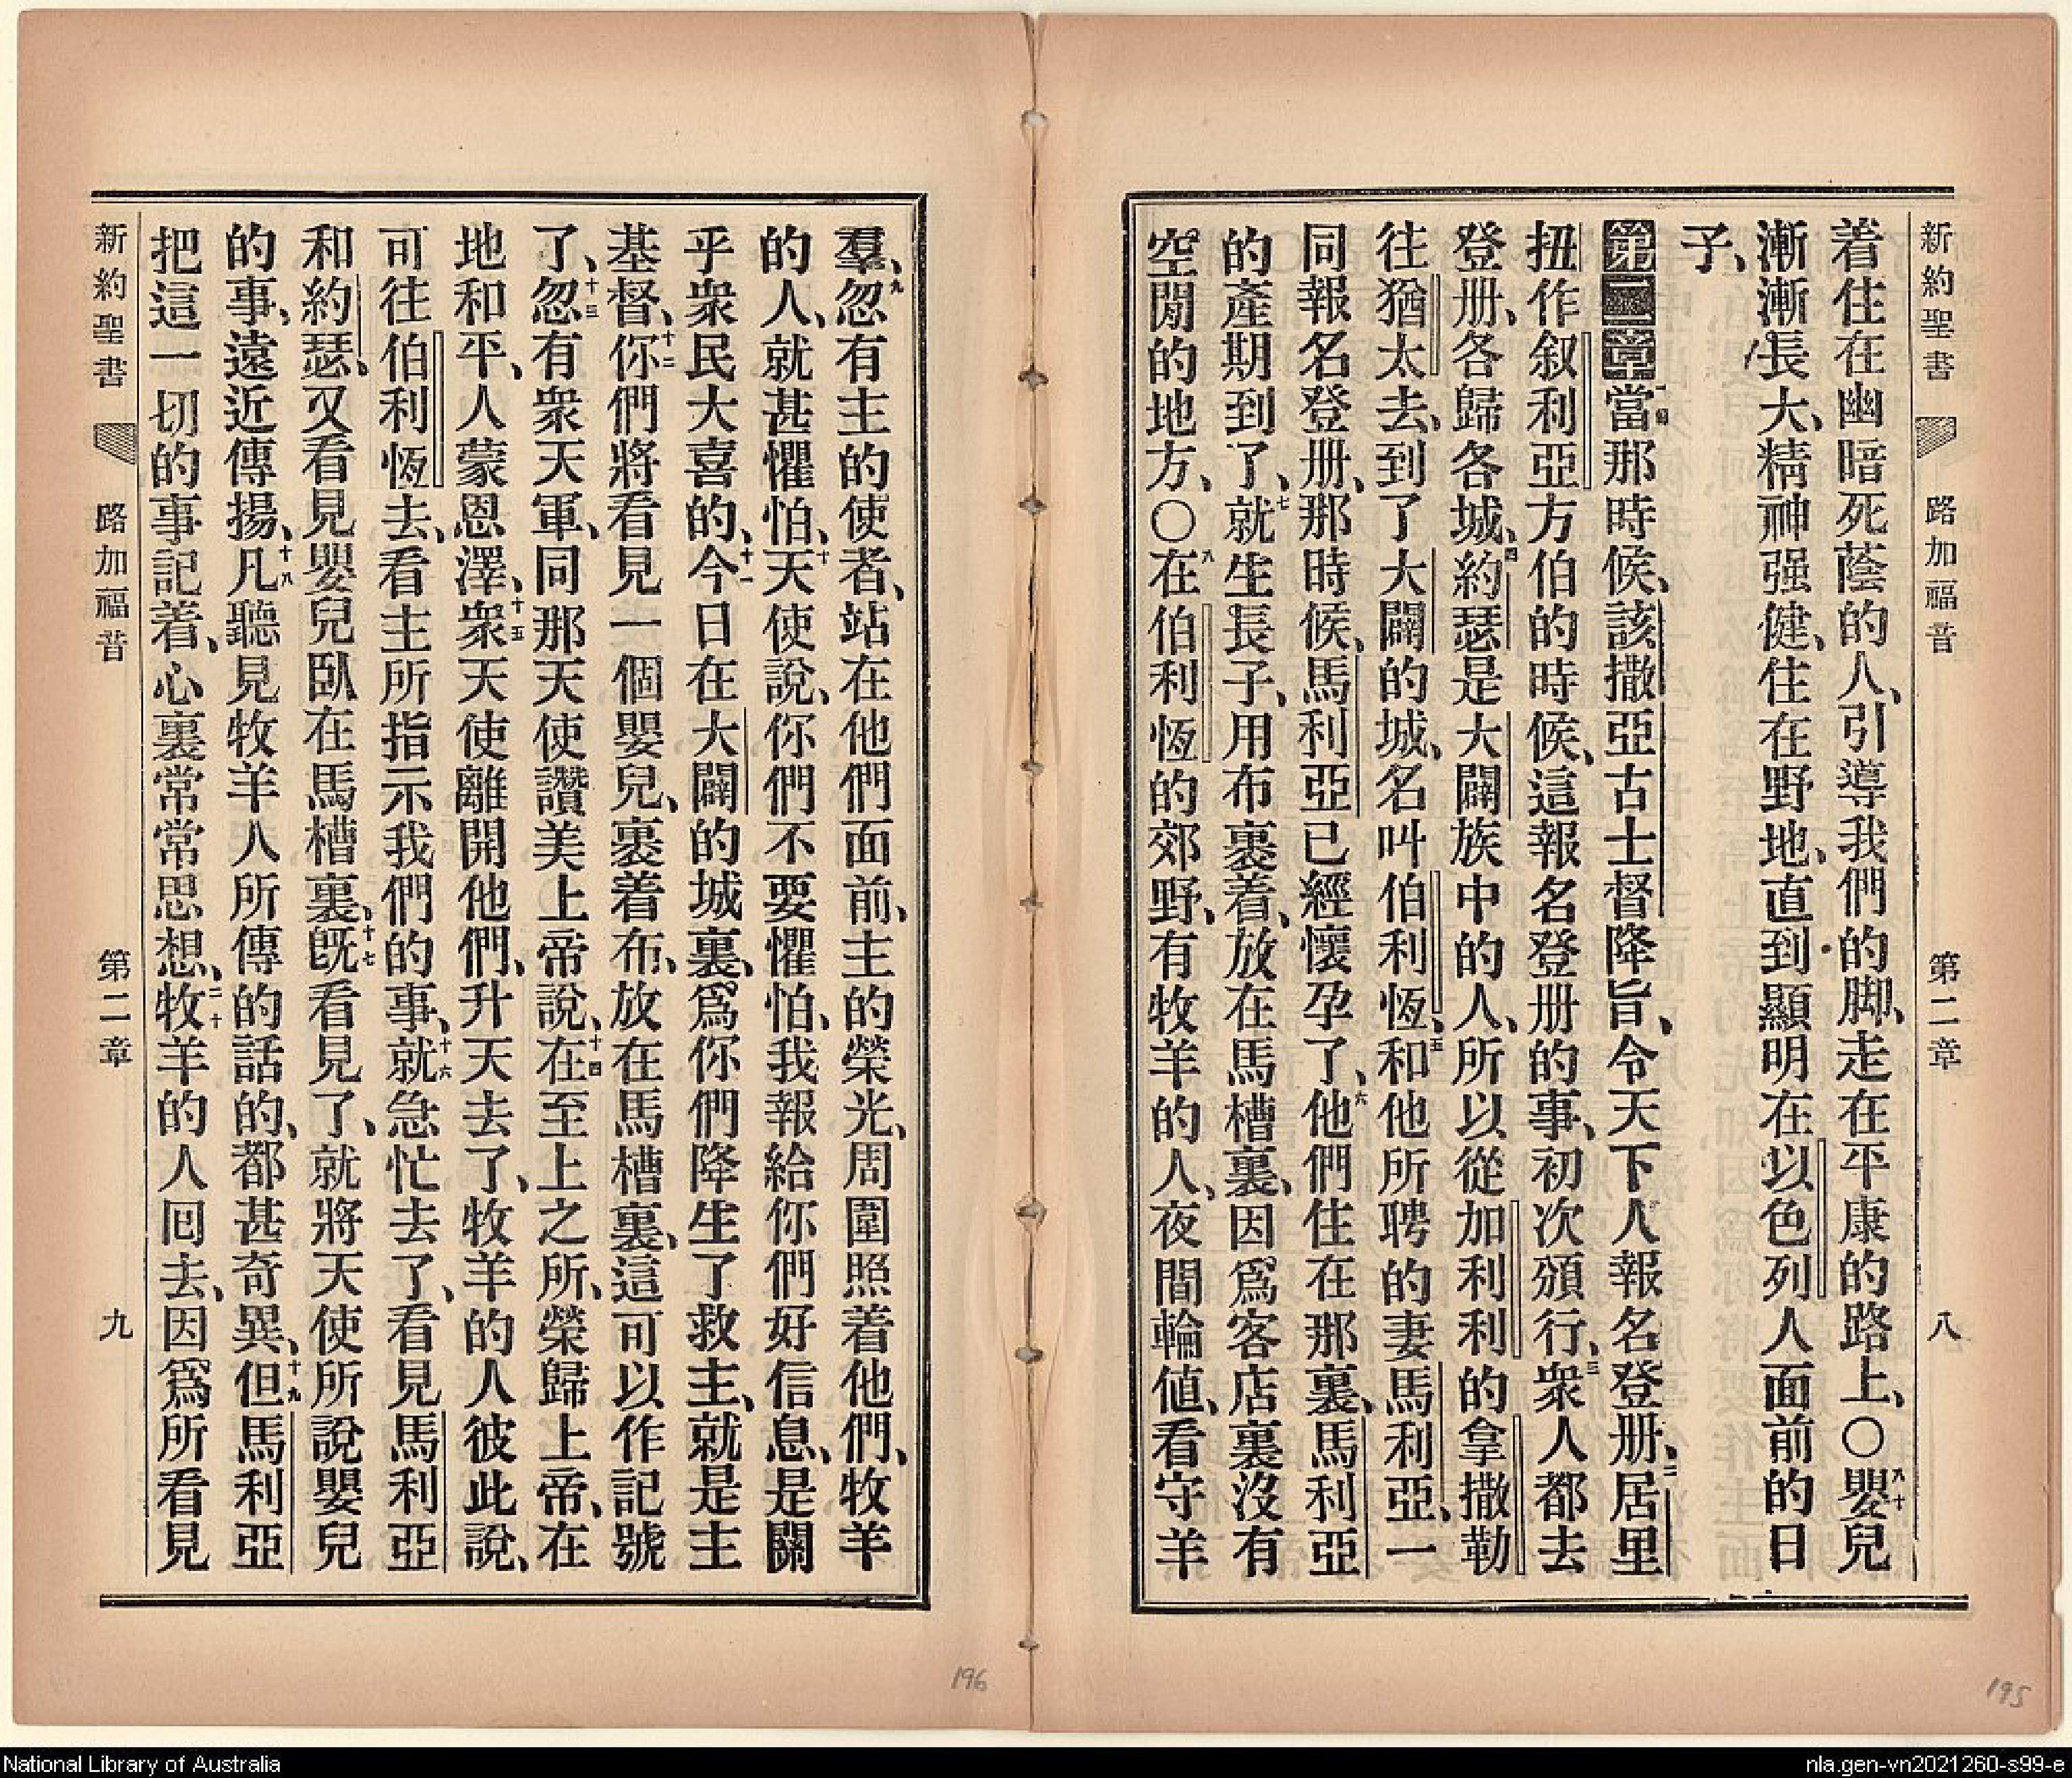 新約聖書 路加福音 第二章 八
着住在幽暗死蔭的人、引導我們的脚、走在平康的路上、〇八十嬰兒
漸漸長大、精神强健、住在野地、直到顯明在以色列人面前的日
子、
第二章一節當那時候、該撒亞古士督降旨、令天下人報名登册、二居里
扭作叙利亞方伯的時候、這報名登册的事、初次頒行、三衆人都去
登册、各歸各城、四約瑟是大闢族中的人、所以從加利利的拿撒勒
往猶太去、到了大闢的城、名叫伯利恆、五和他所聘的妻馬利亞、一
同報名登册、那時候、馬利亞已經懷孕了、六他們住在那裏、馬利亞
的產期到了、七就生長子、用布裹着、放在馬槽裏、因爲客店裏沒有
空閒的地方、〇八在伯利恆的郊野、有牧羊的人、夜間輪値、看守羊
羣、九忽有主的使者、站在他們面前、主的榮光、周圍照着他們、牧羊
的人、就甚懼怕、十天使說、你們不要懼怕、我報給你們好信息、是關
乎衆民大喜的、十一今日在大闢的城裏、爲你們降生了救主、就是主
基督、十二你們將看見一個嬰兒、裹着布、放在馬槽裏、這可以作記號
了、十三忽有衆天軍、同那天使讚美上帝說、十四在至上之所、榮歸上帝、在
地和平、人蒙恩澤、十五衆天使離開他們、升天去了、牧羊的人彼此說、
可往伯利恆去、看主所指示我們的事、十六就急忙去了、看見馬利亞
和約瑟、又看見嬰兒臥在馬槽裏、十七旣看見了、就將天使所說嬰兒
的事、遠近傳揚、十八凡聽見牧羊人所傳的話的、都甚奇異、十九但馬利亞
把這一切的事記着、心裏常常思想、二十牧羊的人囘去、因爲所看見
新約聖書 路加福音 第二章 九
196
195
National Library of Australia
nla.gen-vn2021260-s99-e